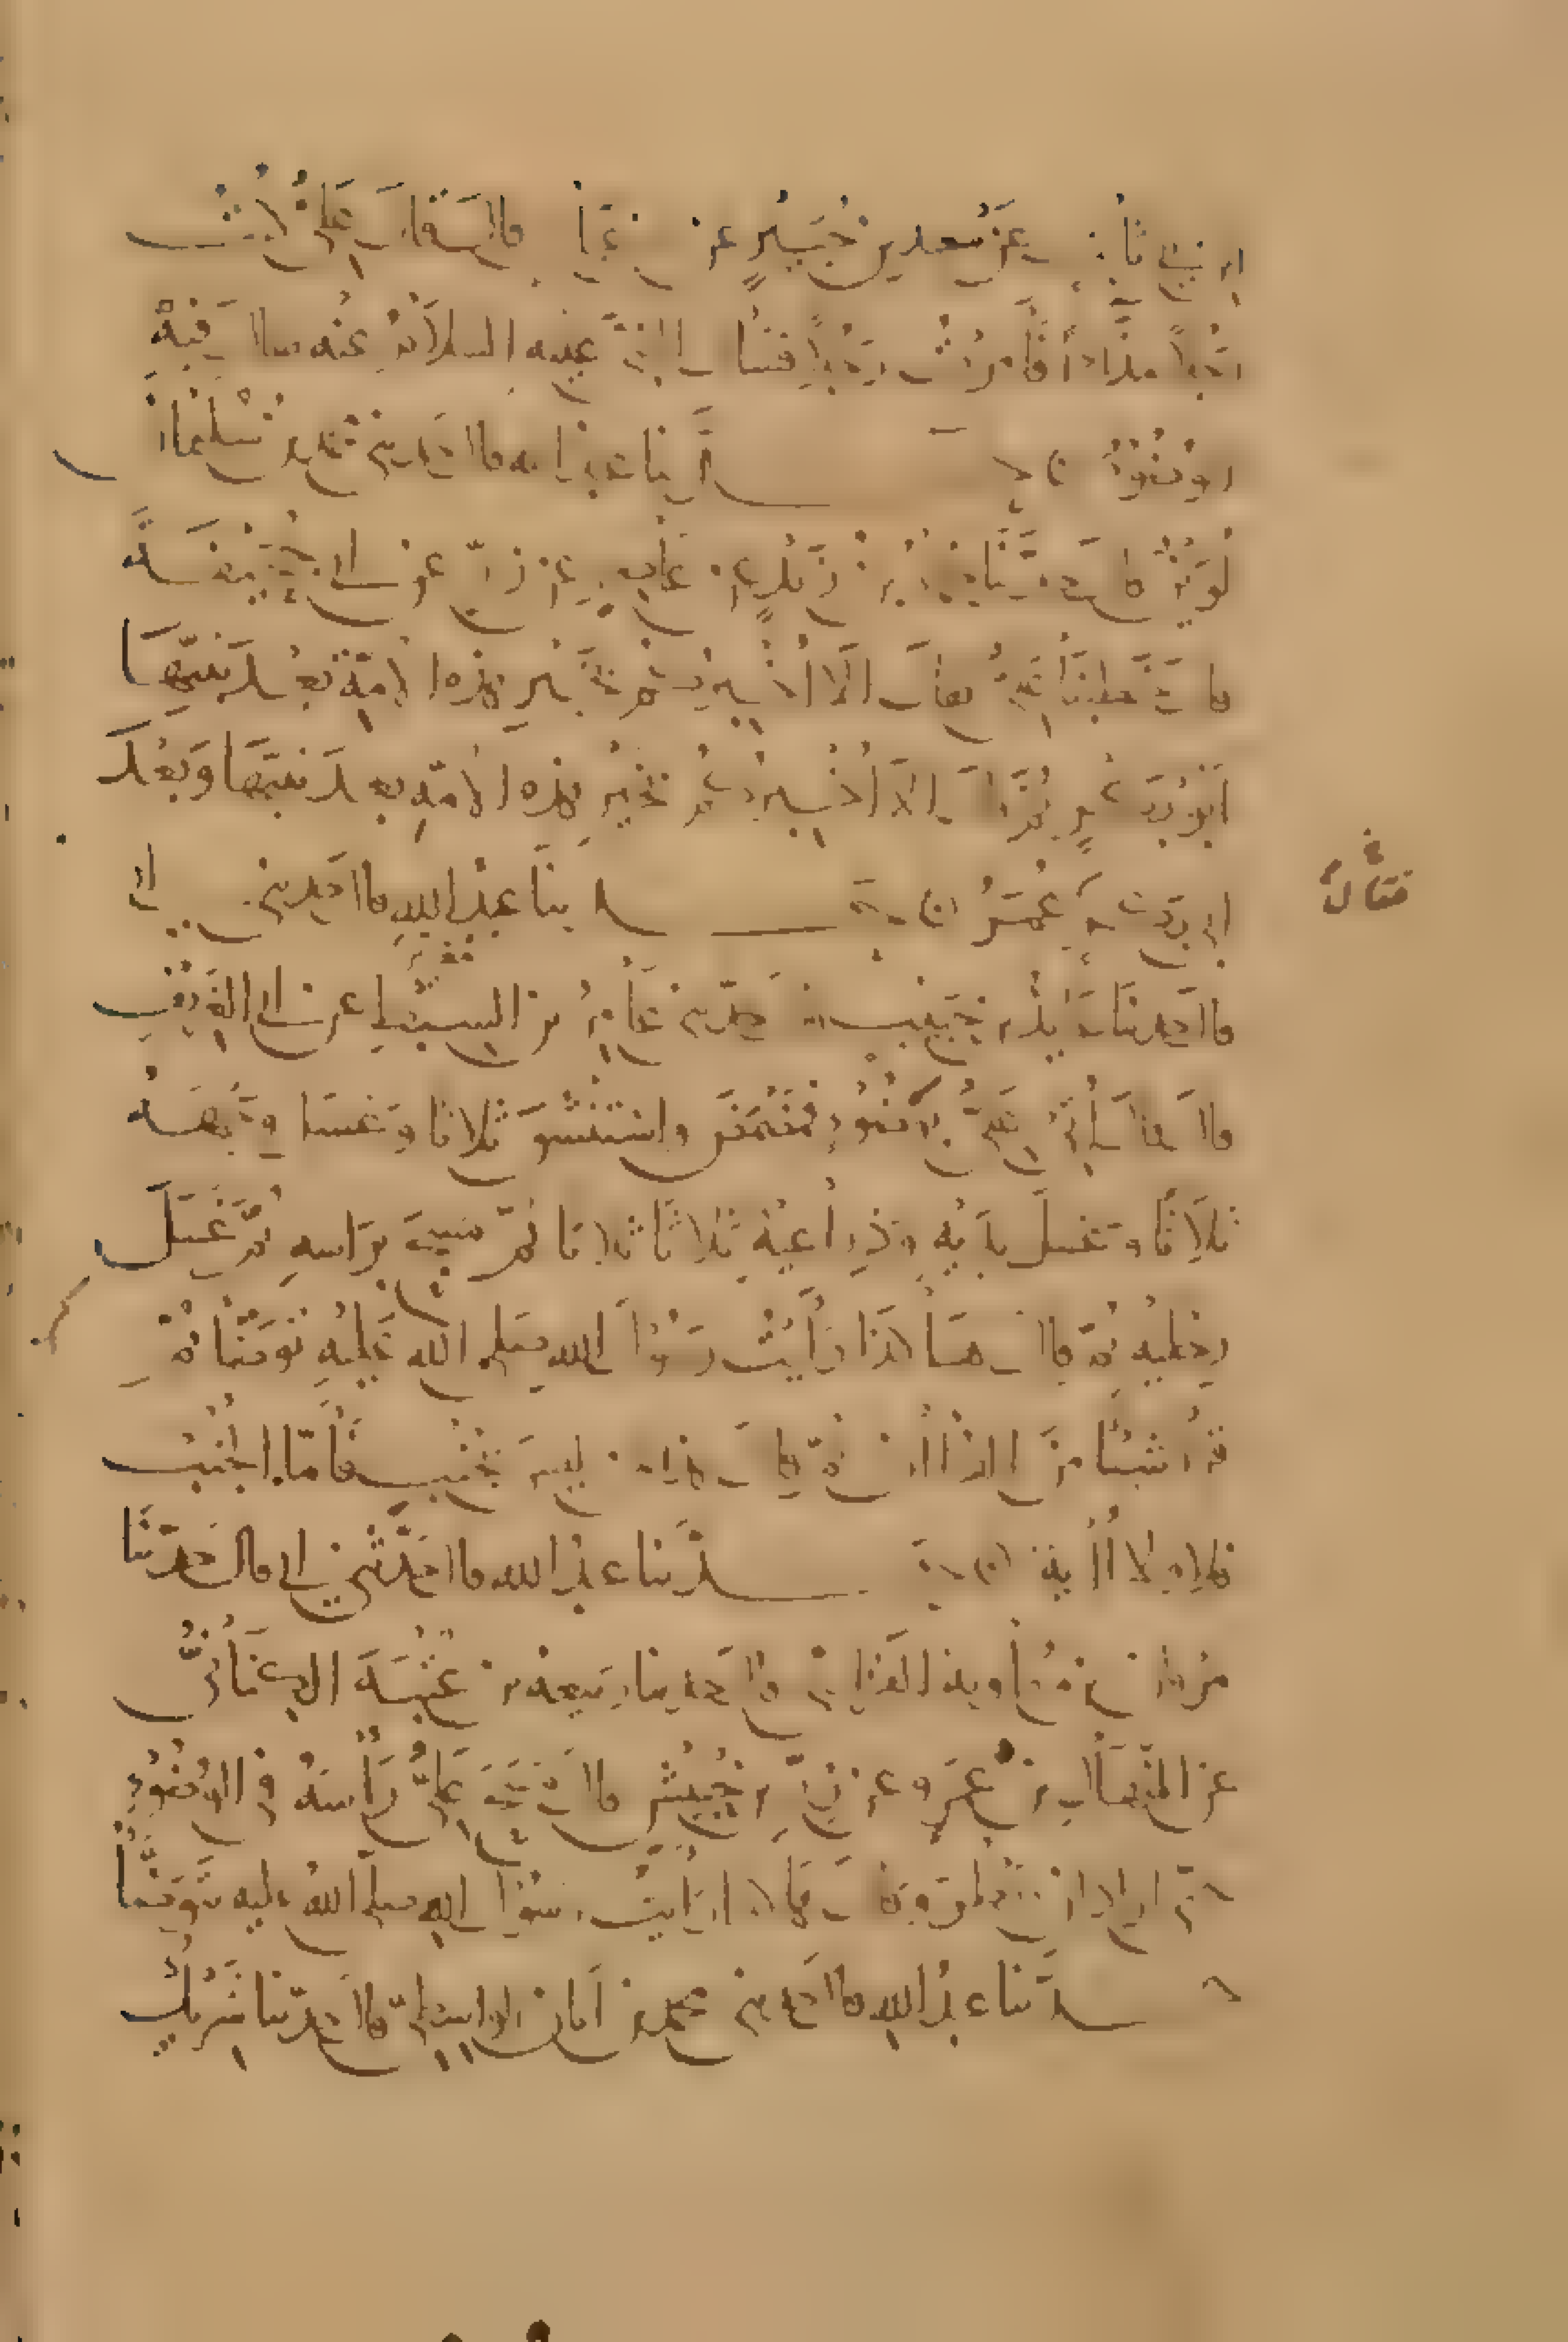 ابن ابي ثابت عن سعيد بن جبير عن ابن عباس قال قال علي كنت
رجلا مذاء فأمرت رجلا فسأل النبي عليه السلام عنه فقال فيه
الوضوء حدثنا عبد الله قال حدثني محمد بن سليمن
لوين قال حدثنا حماد بن زيد عن عاصم عن زر عن ابي جحيفة
قال خطبنا علي فقال الا اخبركم بخير هذه الامة بعد نبيها
ابو بكر ثم قال الا اخبركم بخير هذه الامة بعد نبيها وبعد
ابي بكر عمر حدثنا عبد الله قال حدثني ابي
فقال
قال حدثنا عائذ بن حبيب حدثني عامر بن السمط عن ابي الغريف
قال أتي علي بوضوء فمضمض واستنشق ثلاثا وغسل وجهه
ثلاثا وغسل يديه وذراعيه ثلاثا ثلاثا ثم مسح برأسه ثم غسل
رجليه ثم قال هكذا رأيت رسول الله صلى الله عليه توضأ ثم
قرأ شيئا من القرآن ثم قال هذا لمن ليس بجنب فأما الجنب
فلا ولا آية حدثنا عبد الله قال حدثني ابي قال حدثنا
مروان بن معاوية الفزاري قال حدثنا ربيعة بن عتبة الكناني
عن المنهال بن عمرو عن زر بن حبيش قال مسح علي رأسه في الوضوء
حتى اراد ان يقطر وقال هكذا رأيت رسول الله صلى الله عليه يتوضأ
حدثنا عبد الله قال حدثني محمد بن أبان الواسطي قال حدثنا شريك